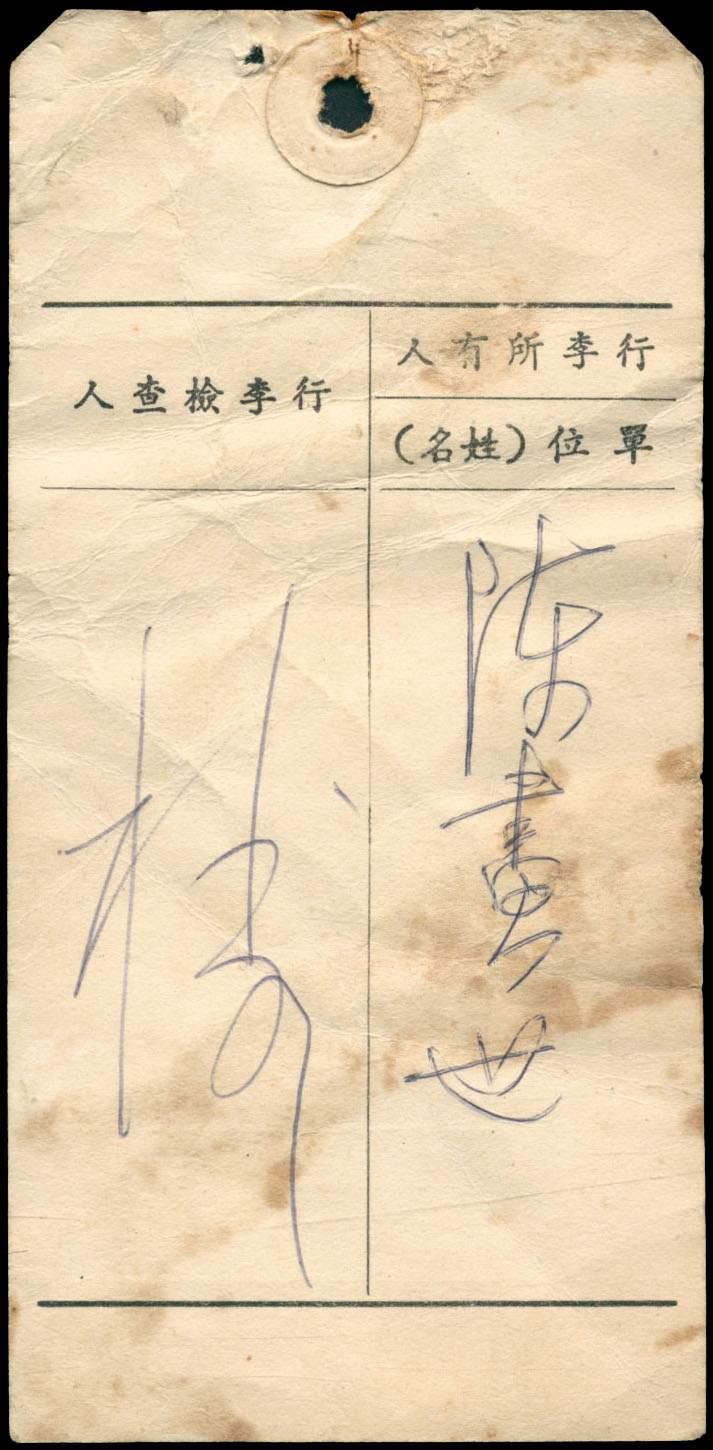 行李所有人
單位（姓名）
陈書世
行李檢查人